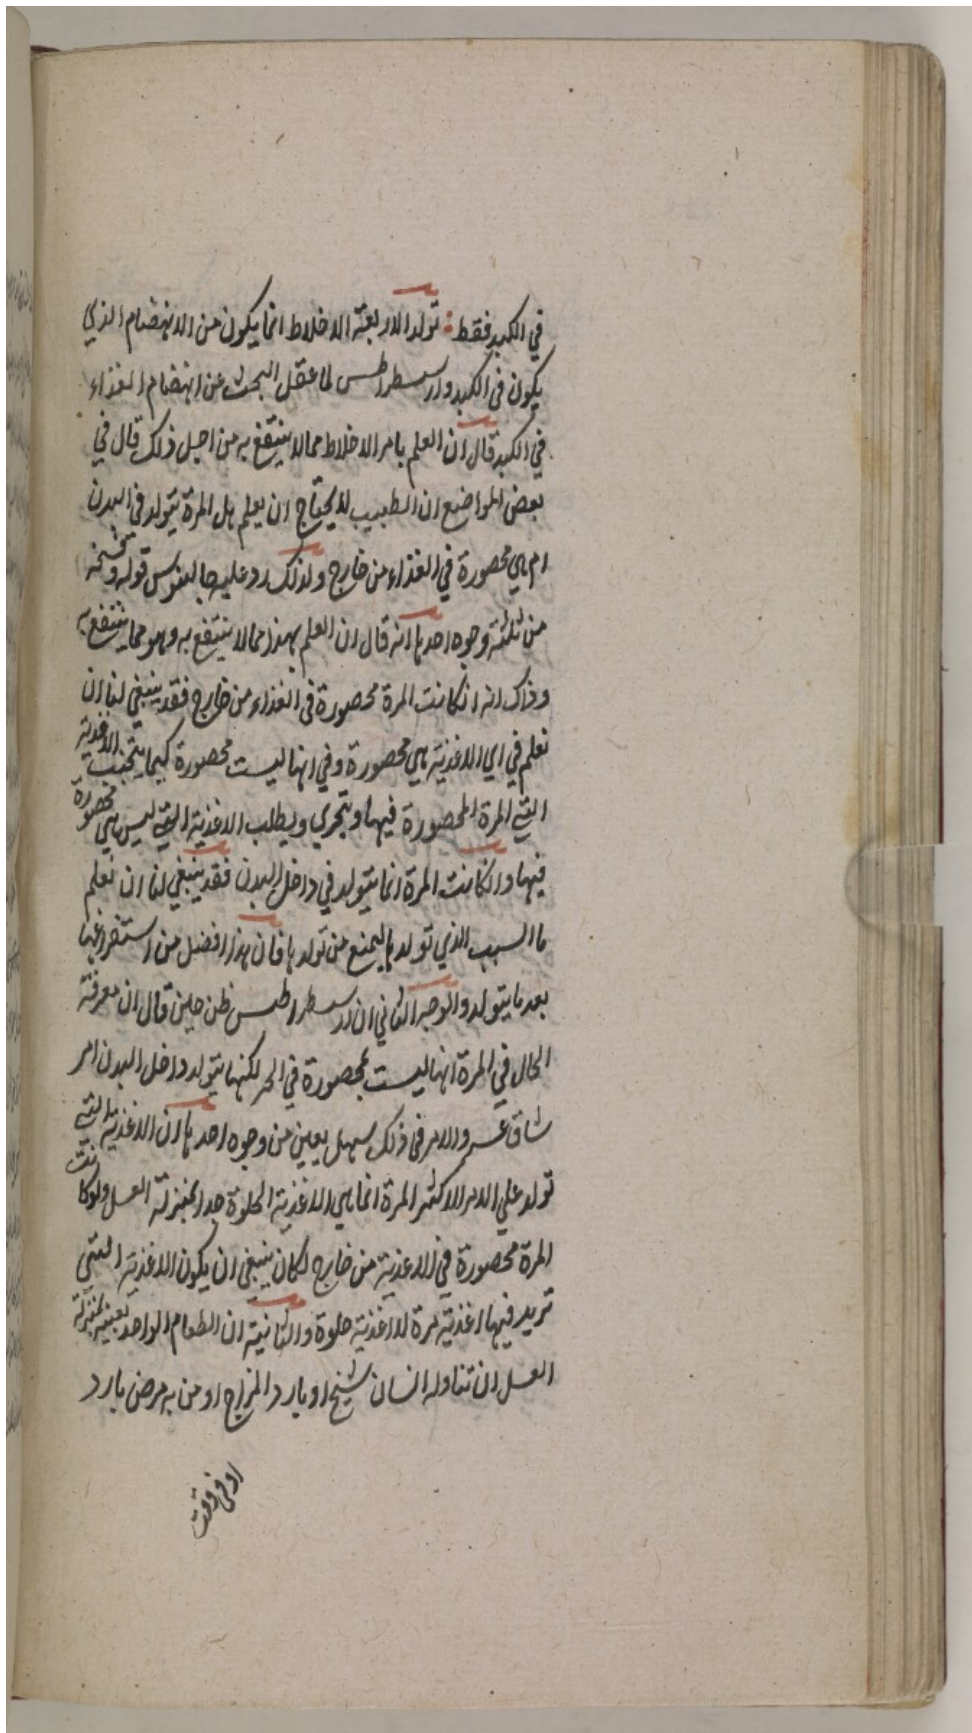 في الكبد فقط : تولد الاربعة الاخلاط انما يكون من الانهضام الذي
يكون في الكبد وارسطراطس لما عقل البحث عن انهضام الغذاء
في الكبد قال ان العلم بامر الاخلاط مما لا ينتفع به من اجل ذلك قال في
بعض المواضع ان الطبيب لا يحتاج ان يعلم هل المرة يتولد في البدن
ام هي محصورة في الغذاء من خارج ولذلك رد عليه جالينوس قوله
من ثلثة وجوه احدها انه قال ان العلم بهذا مما لا ينتفع به وهو مما ينتفع به
وذاك انه ان كانت المرة محصورة في الغذاء من خارج فقد ينبغي لنا ان
نعلم في اي الاغذية هي محصورة وفي ايها ليست محصورة كيما يتجنب الاغذية
التي المرة المحصورة فيها ويتجري ويطلب الاغذية التي ليس هي محصورة
فيها وان كانت المرة انما يتولد في داخل البدن فقد ينبغي لنا ان نعلم
ما السبب الذي تولدها ليمنع من تولدها فان هذا افضل من استفراغها
بعد ما يتولد والوجه الثاني ان ارسطراطس ظن حين قال ان معرفة
الحال في المرة انها ليست بمحصورة في الحر لكنها يتولد داخل البدن امر
شاق عسر والامر في ذلك سهل يعين من وجوه احدها ان الاغذية التي
تولد علي الامر الاكثر المرة انما هي الاغذية الحلوة جدا بمنزلة العسل ولو كانت
المرة محصورة في الاغذية من خارج لكان ينبغي ان يكون الاغذية التي
تريد فيها اغذية مرة لا اغذية حلوة والثانية ان الطعام الواحد بعينه بمنزلة
العسل ان تناوله انسان شيخ او بارد المزاج او من به مرض بارد
او في وقت